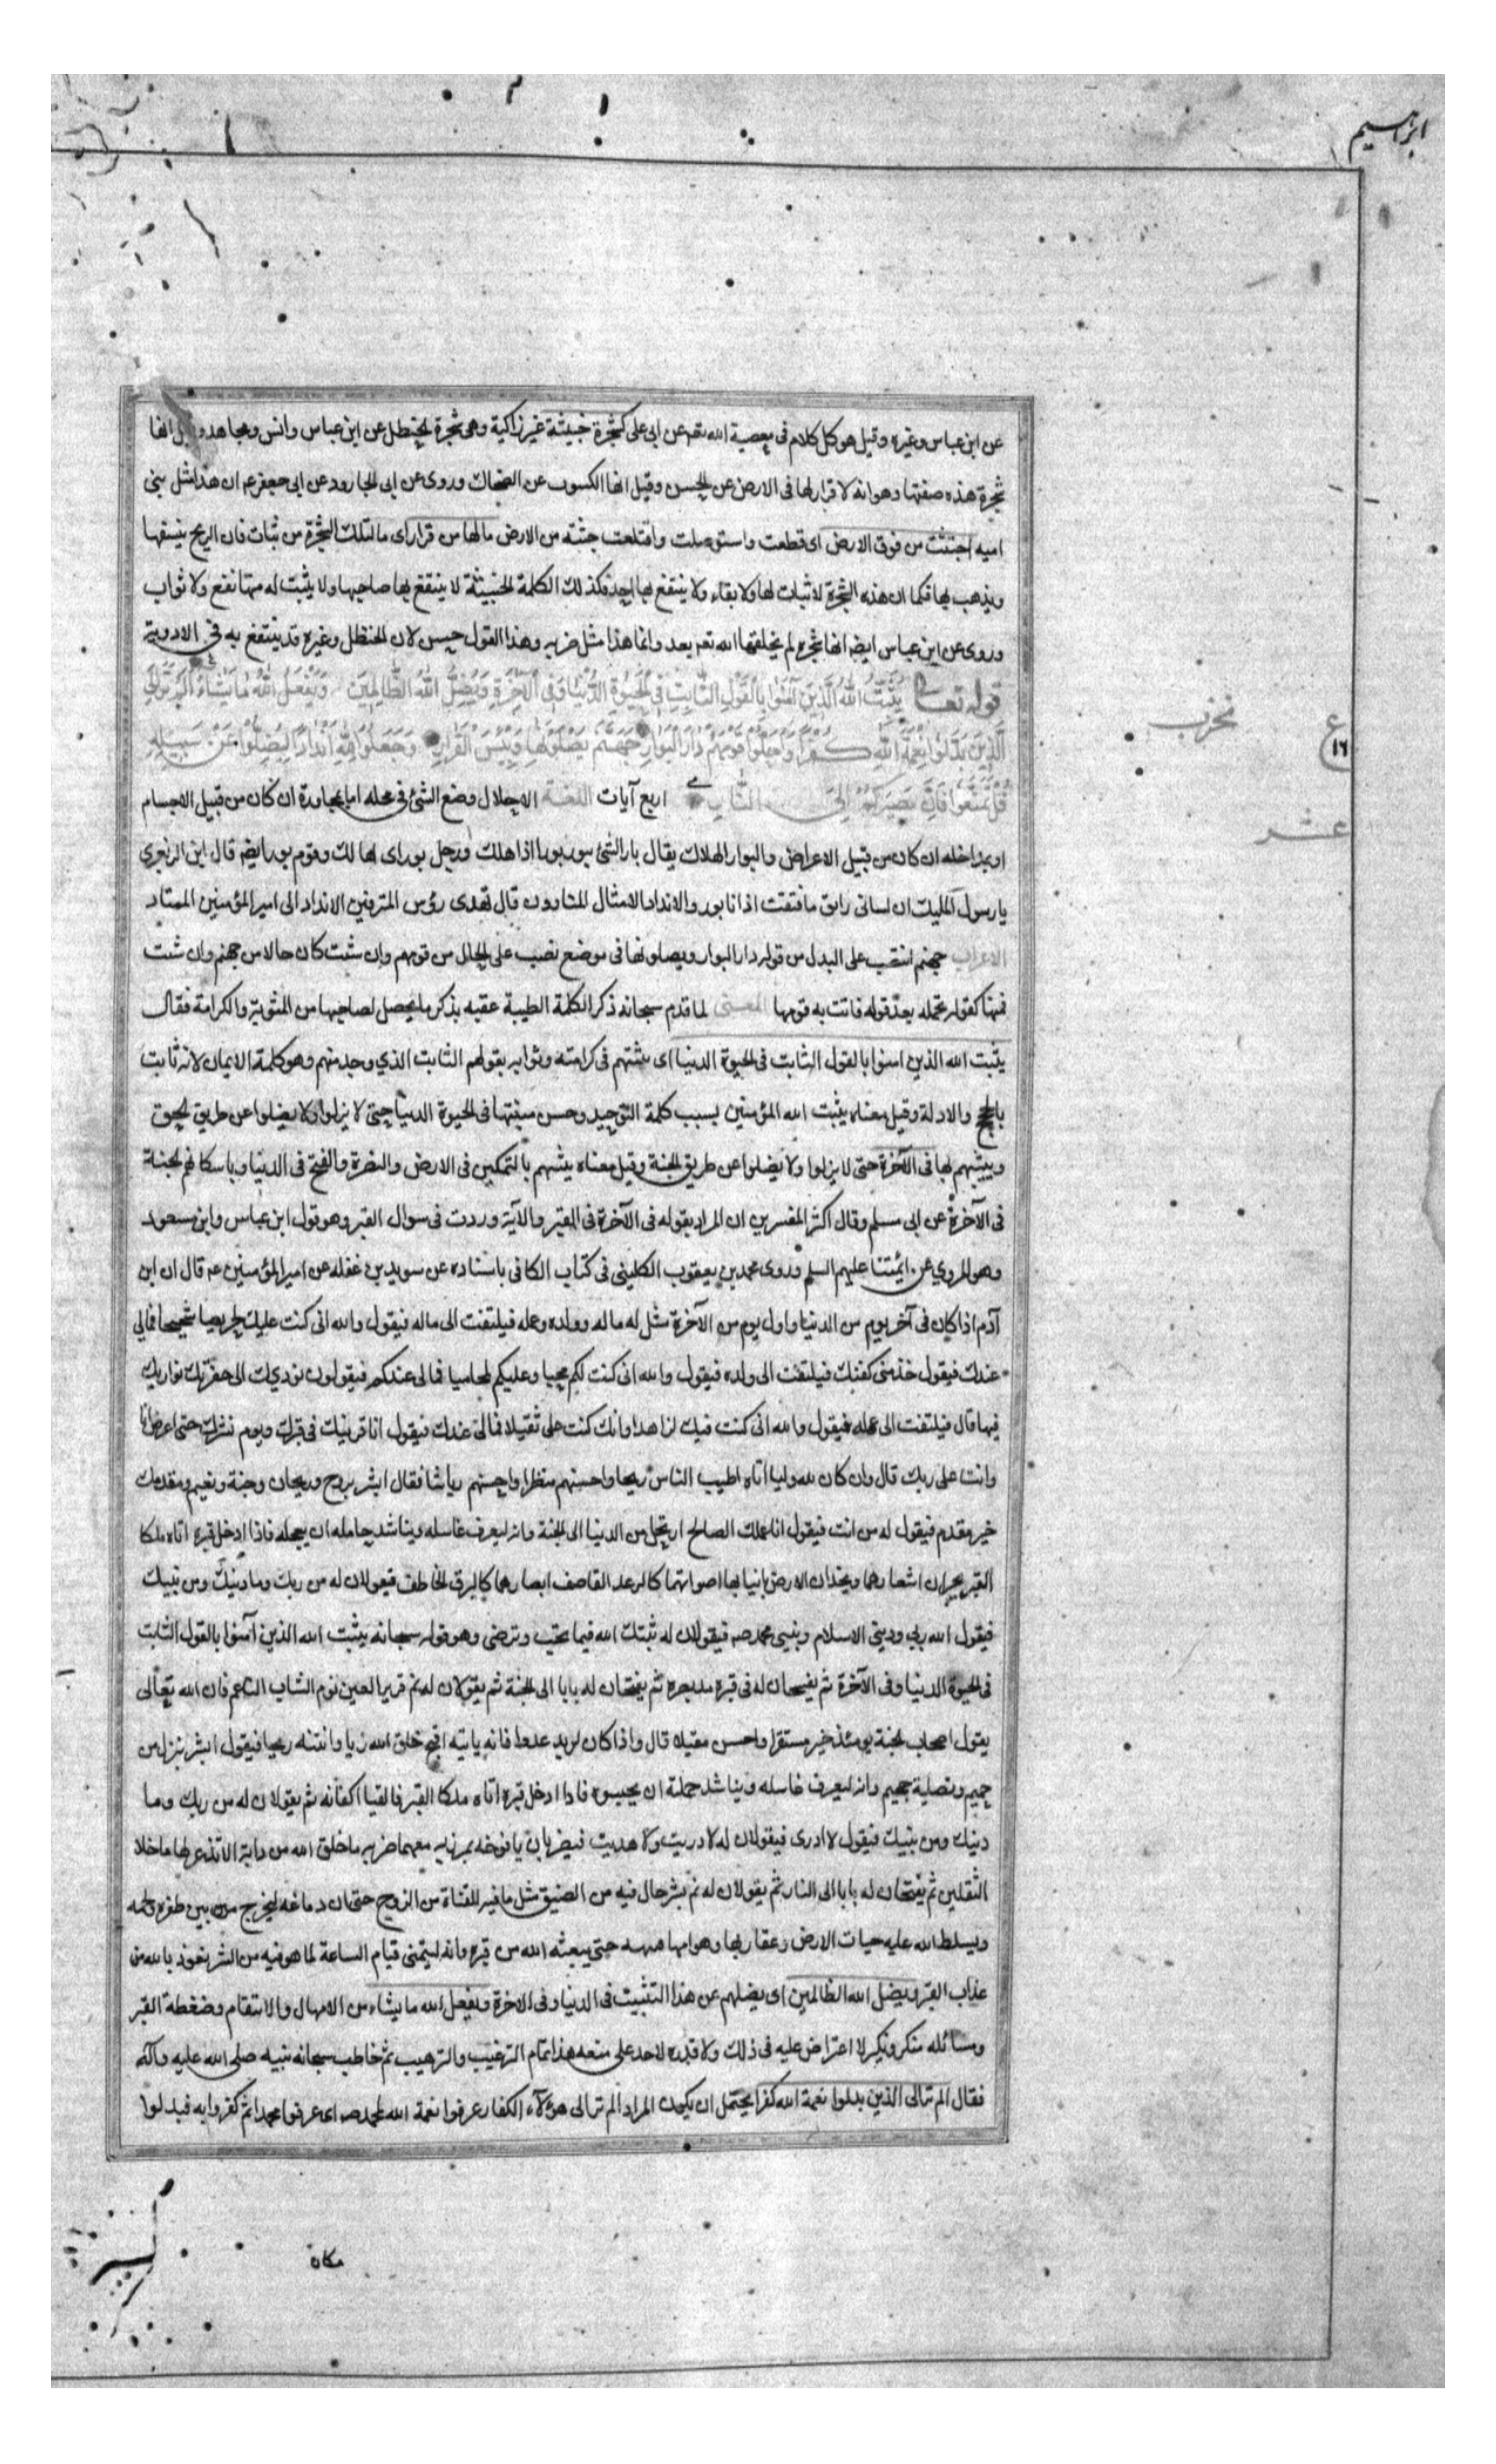 ابراهيم
عن ابن عباس وغيره وقيل هو كل كلام فى معصية الله تعه عن ابى على كشجرة خبيثة غير زاكية وهى شجرة الحنظل عن ابن عباس وانس ومجاهد وقيل انها
شجرة هذه صفتها وهو انه لا قرار لها فى الارض عن الحسن وقيل انها الكسوب عن الضحاك وروى عن ابى الجارود عن ابى جعفر عم ان هذا مثل بنى
اميه اجتثت من فوق الارض اى قطعت واستوصلت واقتلعت جثته من الارض مالها من قرار اى ما لتلك الشجرة من ثبات فان الريح ينسفها
ويذهب بها فكما ان هذه الشجرة لا ثبات لها ولا بقاء ولا ينتفع بها احد فكذلك الكلمة الخبيثة لا ينتفع بها صاحبها ولا يثبت له منها نفع ولا ثواب
وروى عن ابن عباس ايضه انها شجره لم يخلقها الله تعه بعد وانما هذا مثل ضربه وهذا القول حسن لان الحنظل وغيره قد ينتفع به فى الادوية
قوله تعالى يُثَبِّتُ اللهُ الَّذِينَ آمَنُوا بِالْقَوْلِ الثَّابِتِ فِي الْحَيٰوةِ الدُّنْيَا وَفِي الْآخِرَةِ وَيُضِلُّ اللهُ الظَّالِمِينَ وَيَفْعَلُ اللهُ مَا يَشَاءُ أَلَمْ تَرَ إِلَى
الَّذِينَ بَدَّلُوا نِعْمَةَ اللهِ كُفْرًا وَأَحَلُّوا قَوْمَهُمْ دَارَ الْبَوَارِ جَهَنَّمَ يَصْلَوْنَهَا وَبِئْسَ الْقَرَارُ وَجَعَلُوا لِلهِ أَنْدَادًا لِيُضِلُّوا عَنْ سَبِيلِهِ
قُلْ تَمَتَّعُوا فَإِنَّ مَصِيرَكُمْ إِلَى النَّارِ اربع آيات اللغة الاحلال وضع الشئ فى محله اما بمجاورة ان كان من قبيل الاجسام
او بمداخله ان كان من قبيل الاعراض والبوار الهلاك يقال بار الشئ يبور بورا اذا هلك ورجل بور اى هالك وقوم بور ايضه قال ابن الزبعرى
يا رسول المليك ان لسانى راتق ما فتقت اذ انا بور والانداد الامثال المناوون قال تهدى رؤس المترفين الانداد الى امير المؤمنين الممتاد
الاعراب جهنم انتصب على البدل من قوله دار البوار ويصلونها فى موضع نصب على الحال من قومهم وان شئت كان حالا من جهنم وان شئت
فمنها كقوله تحمله بعد قوله فاتت به قومها المعنى لما قدم سبحانه ذكر الكلمة الطيبة عقبه بذكر ما يحصل لصاحبها من المثوبة والكرامة فقال
يثبت الله الذين امنوا بالقول الثابت فى الحيوة الدنيا اى يثبتهم فى كرامته وثوابه بقولهم الثابت الذي وجد منهم وهو كلمة الايمان لانه ثابت
بالحجج والادلة وقيل معناه يثبت الله المؤمنين بسبب كلمة التوحيد وحسن ميقتها فى الحيوة الدنيا حتى لا يزلوا ولا يضلوا عن طريق الحق
ويثبتهم بها فى الآخرة حتى لا يزلوا ولا يضلوا عن طريق الجنة وقيل معناه يثبتهم بالتمكين فى الارض والنصرة والفتح فى الدنيا وباسكانهم الجنة
فى الآخرة عن ابى مسلم وقال اكثر المفسرين ان المراد بقوله فى الآخرة فى القبر والآية وردت فى سوال القبر وهو قول ابن عباس وابن مسعود
وهو المروي عن ائمتنا عليهم السلم وروى محمد بن يعقوب الكلينى فى كتاب الكافى باسناده عن سويد بن غفله عن امير المؤمنين عه قال ان ابن
آدم اذا كان فى آخر يوم من الدنيا واول يوم من الآخرة مثل له ماله وولده وعمله فيلتفت الى ماله فيقول والله انى كنت عليك حريصا شحيحا فمالى
عندك فيقول خذ منى كفنك فيلتفت الى ولده فيقول والله انى كنت لكم محبا وعليكم لحاميا فمالى عندكم فيقولون نوديك الى حفرتك نواريك
فيها قال فيلتفت الى عمله فيقول والله انى كنت فيك لزاهدا وانك كنت على ثقيلا فمالى عندك فيقول انا قرينك فى قبرك ويوم نشرك حتى اعرض انا
وانت على ربك قال وان كان لله وليا اتاه اطيب الناس ريحا واحسنهم منظرا واحسنهم رياشا فقال ابشر بروح وريحان وجنة ونعيم ومقدمك
خير مقدم فيقول له من انت فيقول انا عملك الصالح ارتحل من الدنيا الى الجنة وانه ليعرف غاسله ويناشد حامله ان يعجله فاذا ادخل قبره اتاه ملكا
القبر يجران اشعارهما ويخدان الارض بانيابهما اصواتهما كالرعد القاصف ابصارهما كالبرق الخاطف فيقولان له من ربك وما دينك ومن نبيك
فيقول الله ربى ودينى الاسلام ونبيى محمد صه فيقولان له ثبتك الله فيما تحب وترضى وهو قوله سبحانه يثبت الله الذين آمنوا بالقول الثابت
فى الحيوة الدنيا وفى الآخرة ثم يفسحان له فى قبره مد بصره ثم يفتحان له بابا الى الجنة ثم يقولان له نم قرير العين نوم الشاب الناعم فان الله تعالى
يقول اصحاب الجنة يومئذ خير مستقرا واحسن مقيلا قال واذا كان لربه عدوا فانه ياتيه اقبح خلق الله زيا وانتنه ريحا فيقول ابشر بنزل من
حميم وتصلية جحيم وانه ليعرف غاسله ويناشد حملته ان يحبسوه فاذا ادخل قبره اتاه ملكا القبر فالقيا اكفانه ثم يقولان له من ربك وما
دينك ومن نبيك فيقول لا ادرى فيقولان له لا دريت ولا هديت فيضربان يافوخه بمرزبه معهما ضربه ما خلق الله من دابة الا تذعر لها ما خلا
الثقلين ثم يفتحان له بابا الى النار ثم يقولان له نم بشر حال فيه من الضيق مثل ما فيه القناة من الزج حتى ان دماغه ليخرج من بين ظفره ولحمه
ويسلط الله عليه حيات الارض وعقاربها وهوامها حتى يبعثه الله من قبره وانه ليتمنى قيام الساعة لما هو فيه من الشر نعوذ بالله من
عذاب القبر ويضل الله الظالمين اى يضلهم عن هذا التثبيت فى الدنيا وفى الاخرة ويفعل الله ما يشاء من الامهال والانتقام وضغطة القبر
ومسائله منكر ونكير لا اعتراض عليه فى ذلك ولا قدرة لاحد على منعه هذا تمام الترغيب والترهيب ثم خاطب سبحانه نبيه صلى الله عليه وآله
فقال الم تر الى الذين بدلوا نعمة الله كفرا يحتمل ان يكون المراد الم تر الى هؤلآء الكفار عرفوا نعمة الله بمحمد صه اى عرفوا محمدا ثم كفروا به فبدلوا
ع
١٦
عشر
مكان